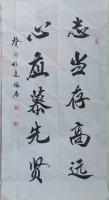 志当存高远
心应慕先贤